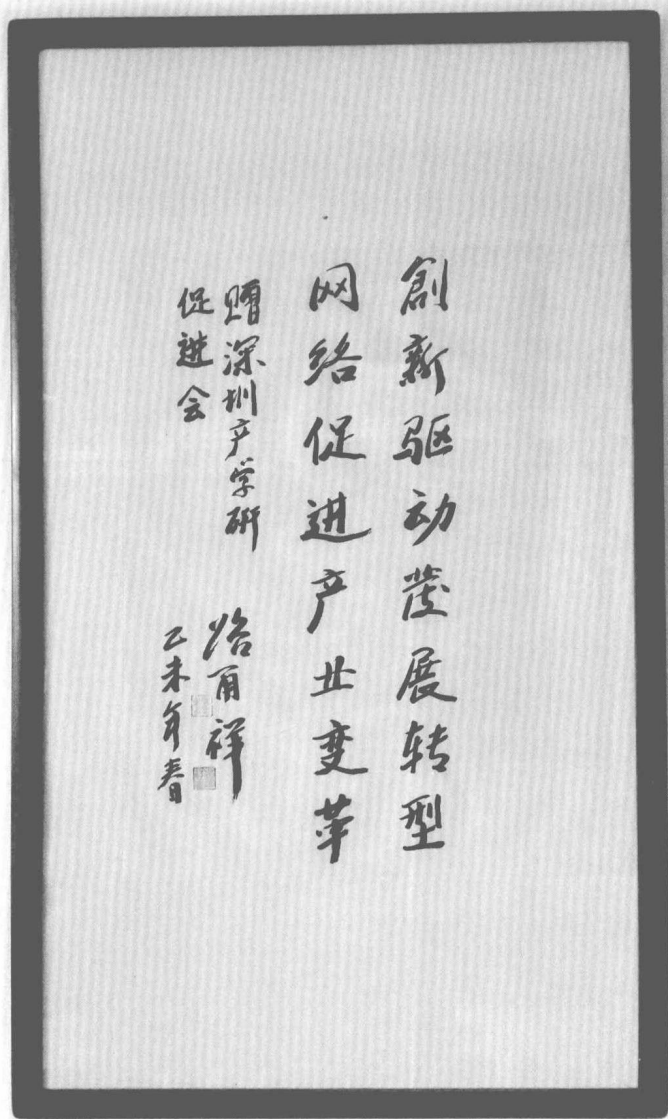 創新驱动发展转型
网络促进产业变革
赠深圳产学研
促进会
百祥
乙未年春